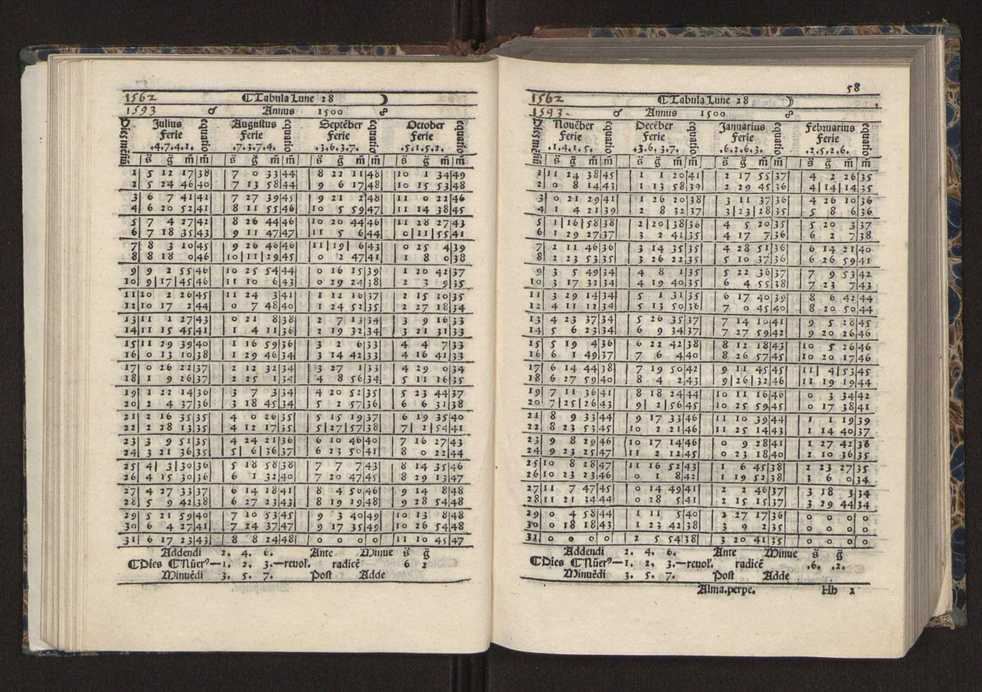 1562 ℂ Tabula Lune 28
1593 ♂ Annus 1500 ☍
Julius Augustus Septēber October
Ferie Ferie Ferie Ferie
.4.7.4.1. .7.3.7.4. .3.6.3.7. .5.1.5.2.
s̄ g̃ m̃ m̃ s̄ g̃ m̃ m̃ s̄ g̃ m̃ m̃ s̄ g̃ m̃ m̃
1 5 12 17 38 7 0 33 44 8 22 11 48 10 1 34 49
2 5 24 46 40 7 13 58 44 9 6 17 48 10 15 53 48
3 6 7 41 41 7 27 39 45 9 21 2 48 11 0 22 46
4 6 20 52 41 8 11 55 46 10 5 59 47 11 14 38 45
5 7 4 27 42 8 26 44 46 10 20 44 46 11 28 27 43
6 7 18 35 43 9 11 47 47 11 5 6 44 0 11 55 41
7 8 3 10 45 9 26 46 46 11 19 6 43 0 25 4 39
8 8 18 0 46 10 11 29 45 0 2 47 41 1 8 0 38
9 9 2 55 46 10 25 54 44 0 16 15 39 1 20 42 37
10 9 17 45 46 11 10 6 43 0 29 24 38 2 3 9 35
11 10 2 26 45 11 24 3 41 1 12 16 37 2 15 10 35
12 10 17 2 44 0 7 48 40 1 24 52 35 2 27 18 34
13 11 2 27 43 0 21 8 38 2 7 13 34 3 9 16 33
14 11 15 45 41 1 4 11 36 2 19 32 34 3 21 31 33
15 11 29 39 40 1 16 59 36 3 2 6 33 4 4 7 33
16 0 13 10 38 1 29 46 34 3 14 42 33 4 16 41 33
17 0 26 22 37 2 12 32 34 3 27 1 33 4 29 0 34
18 1 9 26 37 2 25 1 34 4 8 56 34 5 11 16 35
19 1 22 14 36 3 7 3 34 4 20 52 35 5 23 44 37
20 2 4 37 36 3 18 45 34 5 2 57 36 6 6 31 38
21 2 16 35 35 4 0 26 35 5 15 19 37 6 19 35 40
22 2 28 13 35 4 12 17 35 5 27 57 38 7 2 54 41
23 3 9 51 35 4 24 21 36 6 10 46 40 7 16 27 43
24 3 21 36 35 5 6 36 37 6 23 50 41 8 0 22 44
25 4 3 30 36 5 18 58 38 7 7 7 43 8 14 35 46
26 4 15 30 36 6 1 32 40 7 20 47 45 8 29 13 47
27 4 27 33 37 6 14 18 41 8 4 50 46 9 14 8 48
28 5 9 42 38 6 27 23 43 8 19 19 48 9 28 54 48
29 5 21 59 40 7 10 53 45 9 3 40 49 10 13 8 48
30 6 4 27 41 7 24 37 47 9 17 35 49 10 26 54 48
31 6 17 23 43 8 8 24 48 0 0 0 0 11 10 45 47
Addendi 2. 4. 6. Ante Minue s̄ g̃
ℂ Dies ℂ Nūer⁹—1. 2. 3.—reuol. radicē 6 2
Minuēdi 3. 5. 7. Post Adde
58
1562 ℂ Tabula Lune 28
1593 ♂ Annus 1500 ☍
Nouēber Decēber Januarius Februarius
Ferie Ferie Ferie Ferie
.1.4.1.5. .3.6.3.7. .6.2.6.3. .2.5.2.6.
s̄ g̃ m̃ m̃ s̄ g̃ m̃ m̃ s̄ g̃ m̃ m̃ s̄ g̃ m̃ m̃
1 11 24 38 45 1 1 20 41 2 17 55 37 4 2 26 35
2 0 8 14 43 1 13 58 39 2 29 45 36 4 14 14 35
3 0 21 29 41 1 26 20 38 3 11 37 36 4 26 10 36
4 1 4 21 39 2 8 32 37 3 23 28 35 5 8 6 36
5 1 16 58 38 2 20 38 36 4 5 20 35 5 20 3 37
6 1 29 27 37 3 2 41 35 4 17 7 36 6 2 7 38
7 2 11 46 36 3 14 35 35 4 28 51 36 6 14 21 40
8 2 23 53 35 3 26 22 35 5 10 37 36 6 26 59 41
9 3 5 49 34 4 8 1 35 5 22 36 37 7 9 53 42
10 3 17 32 34 4 19 40 35 6 4 55 38 7 23 7 43
11 3 29 14 34 5 1 31 35 6 17 40 39 8 6 42 44
12 4 11 12 34 5 13 50 36 7 0 45 40 8 20 50 44
13 4 23 37 34 5 26 35 37 7 14 10 41 9 5 28 45
14 5 6 23 34 6 9 34 37 7 27 59 42 9 20 26 46
15 5 19 4 36 6 22 42 38 8 12 18 43 10 5 26 46
16 6 1 49 37 7 6 4 40 8 26 57 45 10 20 17 46
17 6 14 44 38 7 19 50 42 9 11 45 45 11 4 53 45
18 6 27 59 40 8 4 2 43 9 26 32 46 11 19 19 44
19 7 11 36 41 8 18 24 44 10 11 16 46 0 3 34 42
20 7 25 26 43 9 2 56 45 10 25 59 45 0 17 38 41
21 8 9 33 44 9 17 33 46 11 10 39 44 1 1 19 39
22 8 23 53 45 10 2 21 46 11 25 14 43 1 14 40 37
23 9 8 29 46 10 17 14 46 0 9 28 41 1 27 42 38
24 9 23 25 47 11 2 12 45 0 23 18 40 2 10 36 35
25 10 8 28 47 11 16 52 43 1 6 45 38 2 23 27 35
26 10 23 23 46 0 8 42 1 19 52 38 3 6 0 34
27 11 7 47 45 0 14 49 41 2 2 46 37 3 18 3 34
28 11 21 14 44 0 28 5 41 2 15 15 37 3 29 44 34
29 0 4 58 44 1 11 5 40 2 27 17 36 0 0 0 0
30 0 18 18 43 1 23 42 38 3 9 2 35 0 0 0 0
31 0 0 0 0 2 5 54 38 3 20 41 35 0 0 0 0
Addendi 2. 4. 6. Ante Minue s̄ g̃
ℂ Dies ℂ Nūer⁹—1. 2. 3.—reuol. radicē .6. .2.
Minuēdi 3. 5. 7. Post Adde
Alma.perpe. Hh 2